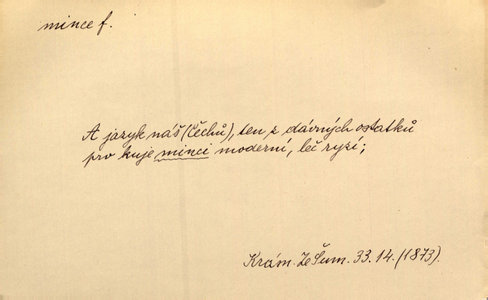 mince f.
A jazyk náš (Čechů), ten z dávných ostatků
pro kuje minci moderní, leč ryzí;
Krám. Ze Šum. 33. 14. (1873).